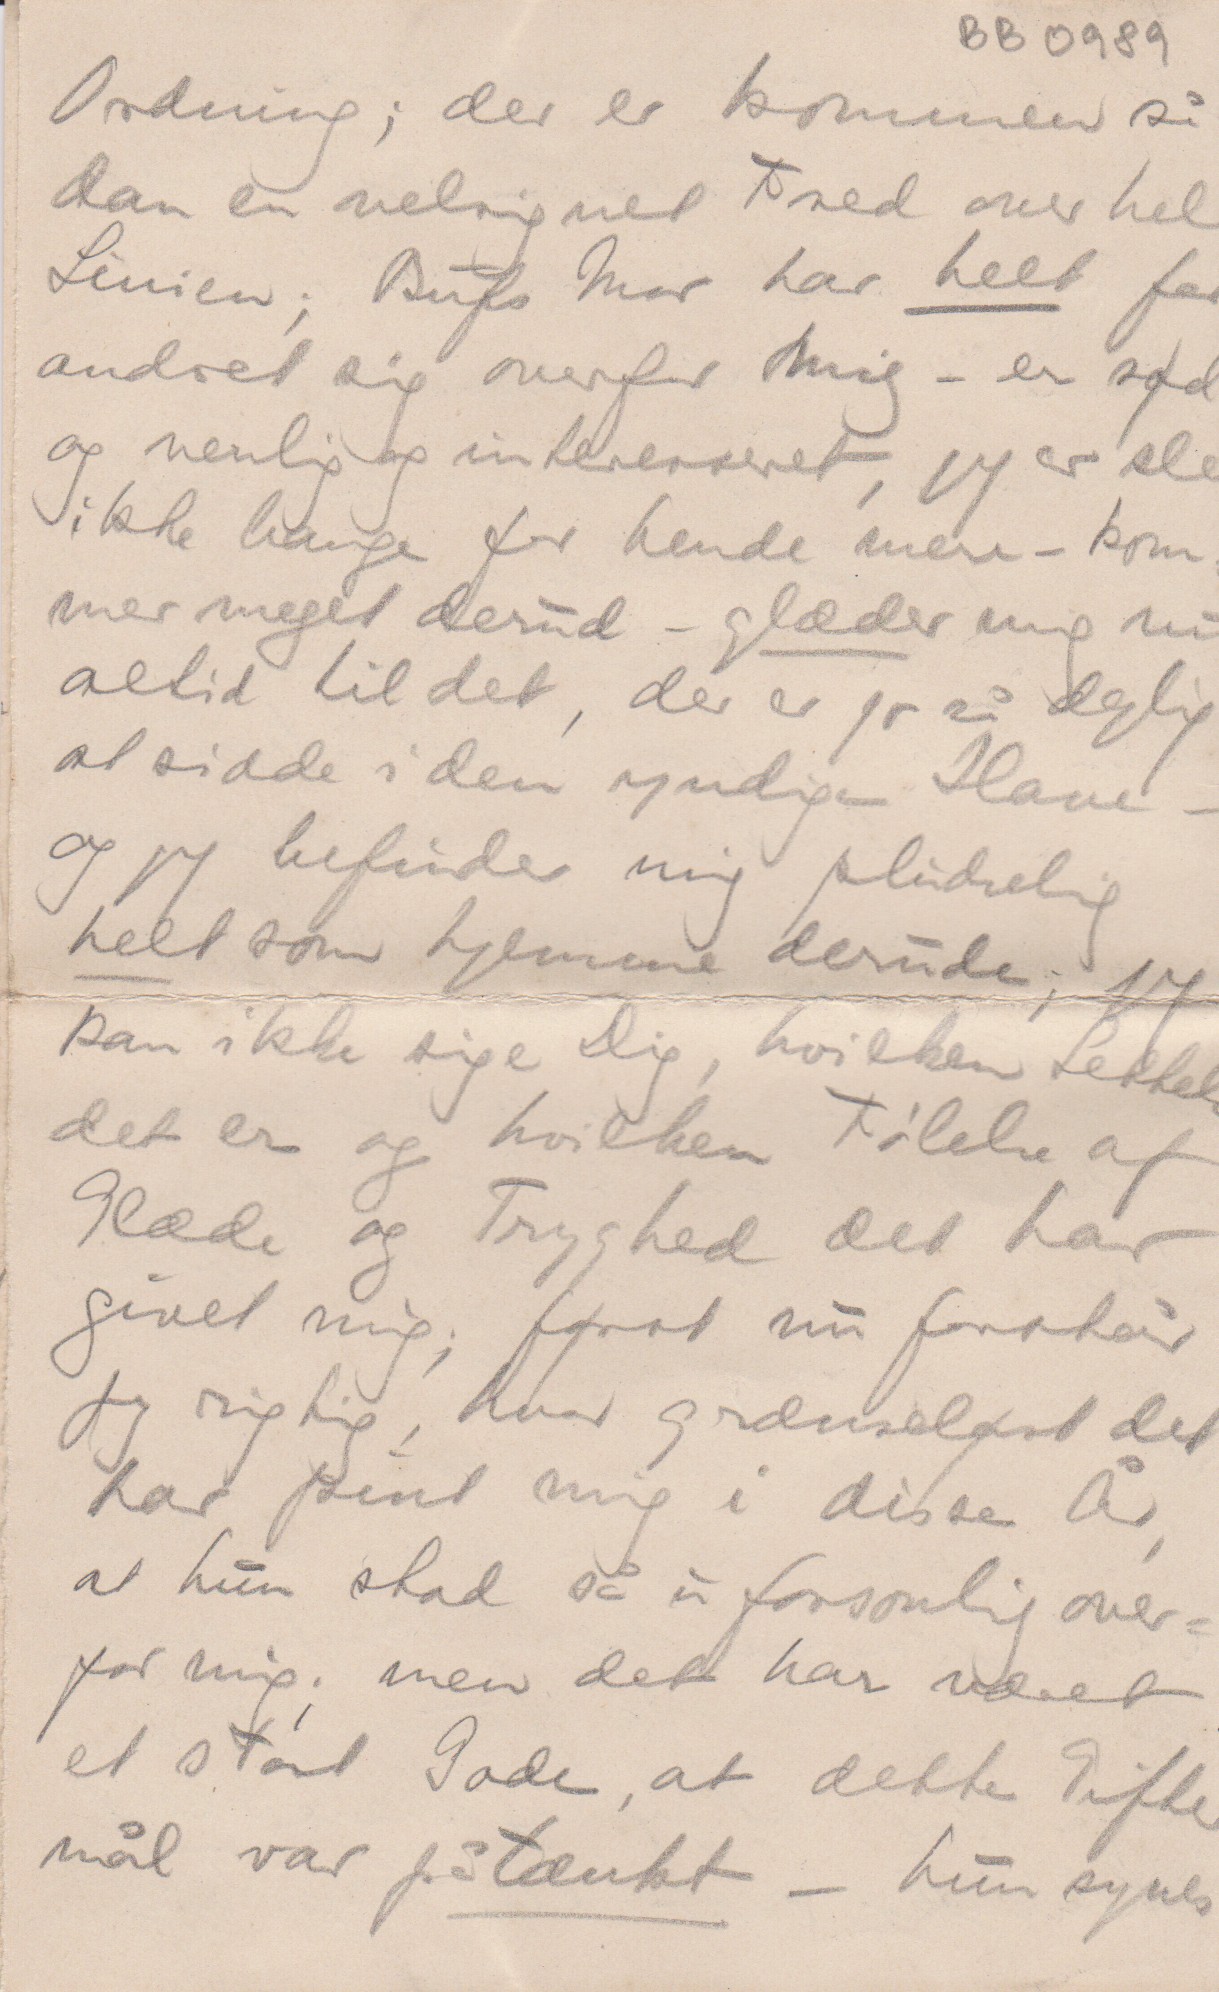 BB 0989
Ordning; der er kommen så
dan en velsignet Fred over hel
Linien; Bufs Mor har helt for
andret sig overfor mig - er sød
og venlig og interesseret, jeg er sle
ikke bange for hende mere - kom=
mer meget derud - glæder mig nu
altid til det, der er jo så dejlig
at sidde i den yndige Have -
og jeg befinder mig pludselig
helt som hjemme derude; jeg
kan ikke sige Dig, hvilken Lettels
det er og hvilken Følelse af
Glæde og Tryghed det har
givet mig; først nu forstår
jeg rigtig, hvor grænseløst det
har pint mig i disse År,
at hun stod så uforsonlig over=
for mig; men det har været
et stort Gode, at dette Gifte
mål var påtænkt - hun synes